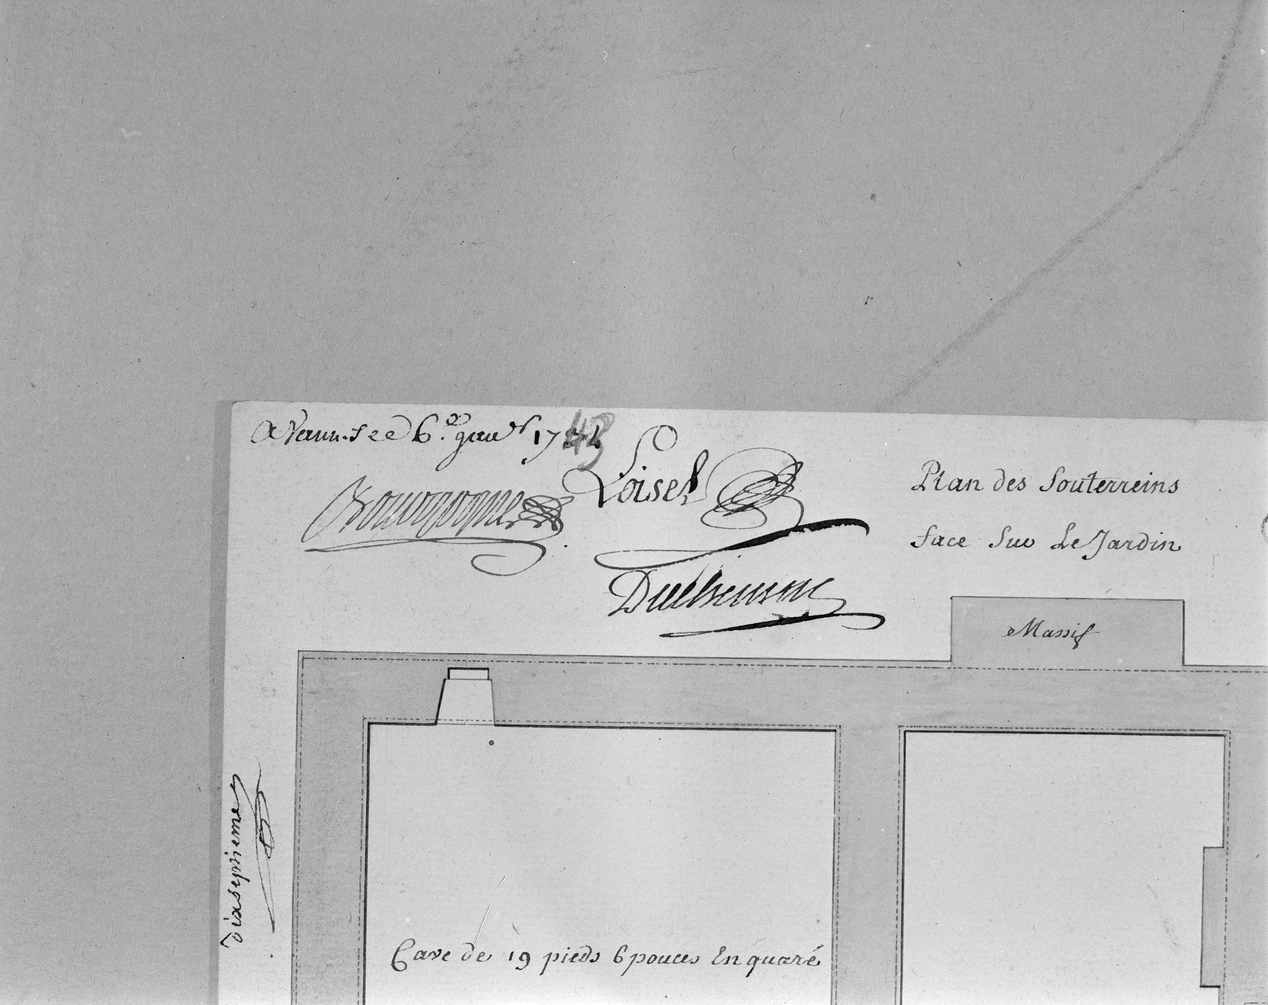 a Vannes ce 6.e janv.er 17
43
Loisel
Bourgogne
Duchemin
Plan des Souterreins
face Sur Le Jardin
Massif
dixseptieme
Cave de 19 pieds 6 pouces En quaré